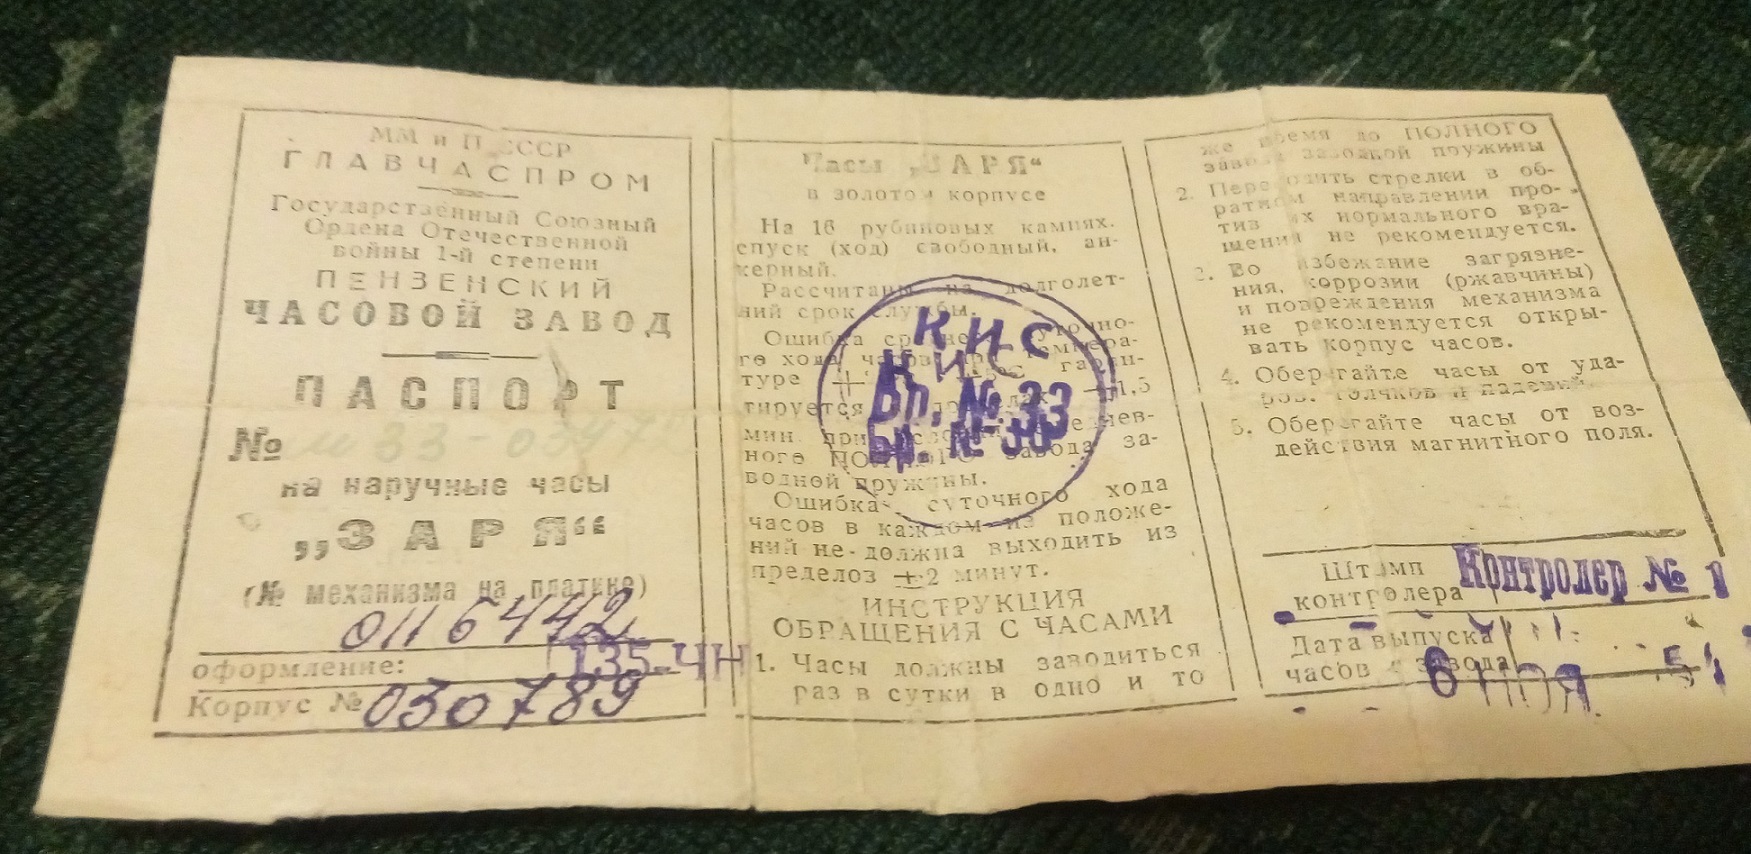 ММ и П СССР
ГЛАВЧАСПРОМ
Государственный Союзный
Ордена Отечественной
войны 1-й степени
ПЕНЗЕНСКИЙ
ЧАСОВОЙ ЗАВОД
ПАСПОРТ
№
на наручные часы
„ЗАРЯ“
(№ механизма на платине)
0116442
оформление: 135-ЧН
Корпус № 030789
Часы „ЗАРЯ“
в золотом корпусе
На 16 рубиновых камнях.
спуск (ход) свободный, ан-
керный.
Рассчитаны на долголет-
ний срок службы.
Ошибка
го хода часов при
туре гаран-
тируется ±1,5
мин. при
ного завода за-
водной пружины.
Ошибка суточного хода
часов в каждом из положе-
ний не-должна выходить из
пределоз ±2 минут.
ИНСТРУКЦИЯ
ОБРАЩЕНИЯ С ЧАСАМИ
1. Часы должны заводиться
раз в сутки в одно и то
КИС
КИС
Вр. № 33
Бр. № 30
же время до ПОЛНОГО
завода заводной пружины
2. Переводить стрелки в об-
ратном направлении про-
тив их нормального вра-
щения не рекомендуется.
3. Во избежание загрязне-
ния, коррозии (ржавчины)
и повреждения механизма
не рекомендуется откры-
вать корпус часов.
4. Оберегайте часы от уда-
ров, толчков и падений.
5. Оберегайте часы от воз-
действия магнитного поля.
Штамп
контролера Контролер № 1
Дата выпуска
часов с завода